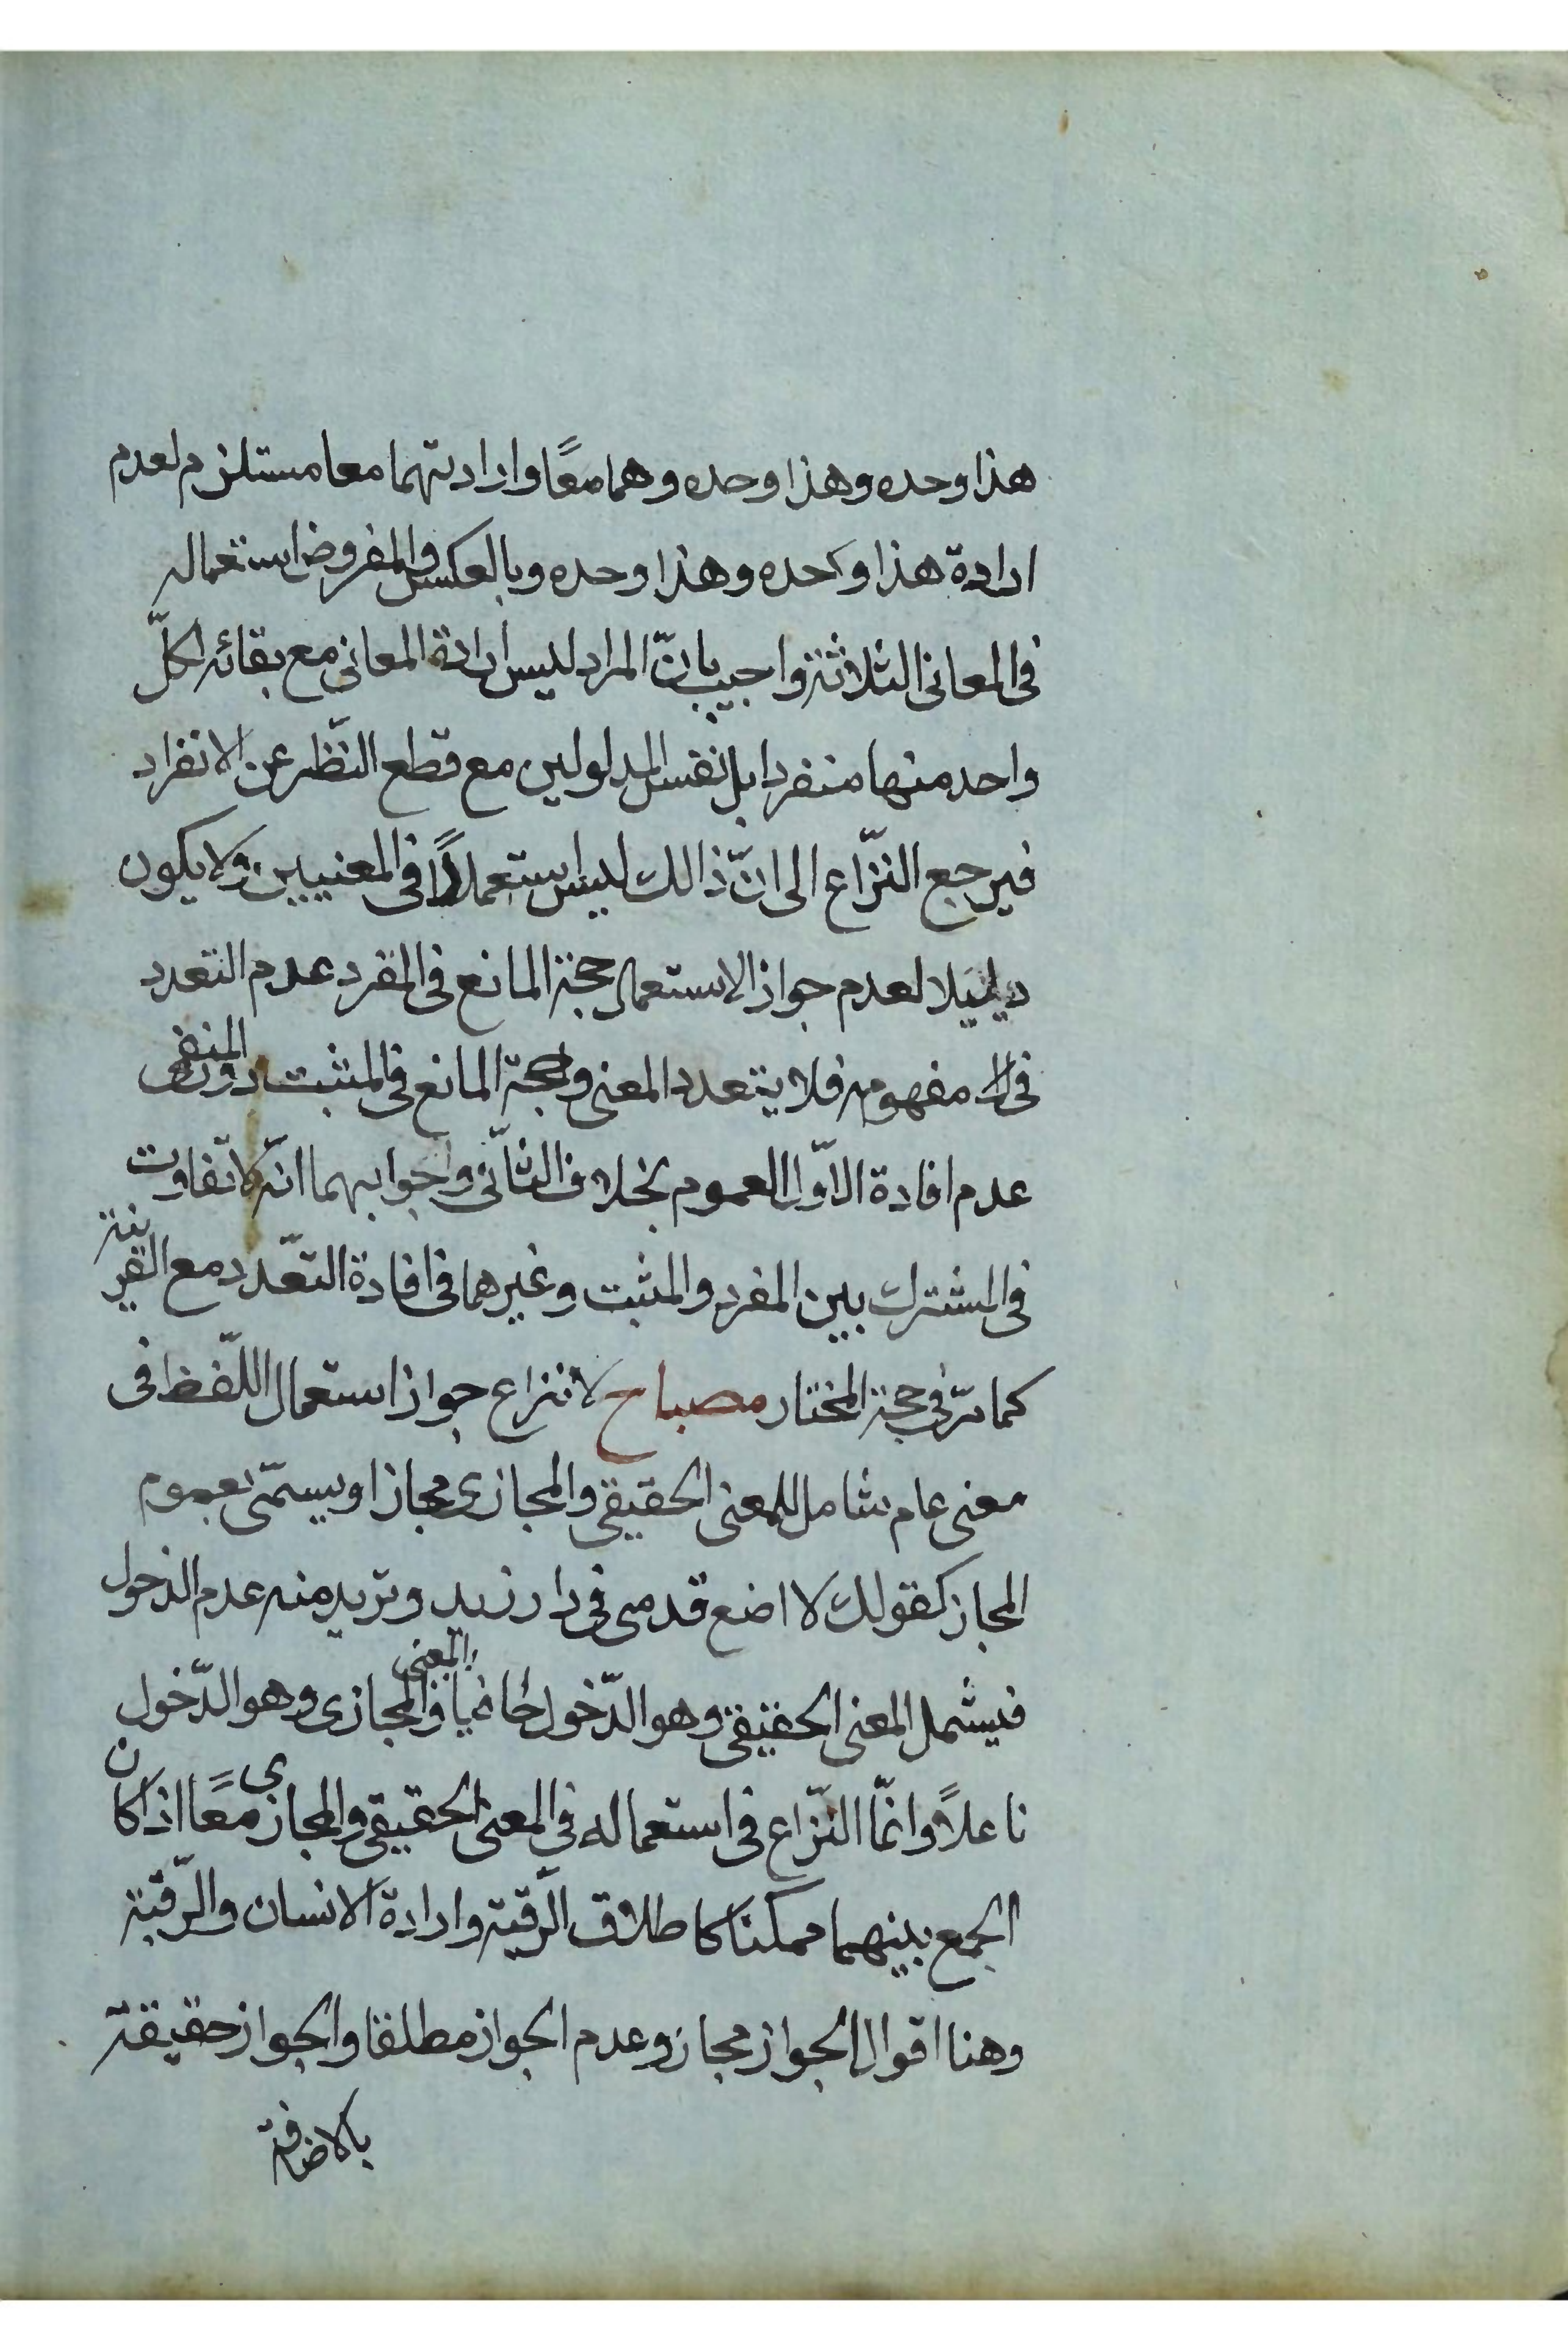 هذا وحده وهذا وحده وهما معًا وارادتهما معا مستلزم لعدم
ارادة هذا وحده وهذا وحده وبالعكس والمفروض استعماله
فى المعانى الثلاثة واجيب بانّ المراد ليس ارادة المعانى مع بقائه لكلّ
واحد منها منفردا بل نفس المدلولين مع قطع النّظر عن الانفراد
فيرجع النّزاع الى انّ ذالك ليس استعمالًا فى المعنيين ولا يكون
دليلا لعدم جواز الاستعمال حجة المانع فى المفرد عدم التعدد
فى مفهومه فلا يتعدد المعنى وحجة المانع فى المثبت دون المنفى
عدم افادة الاوّل العموم بخلاف الثانّى وجوابهما انّه لا تفاوت
فى المشترك بين المفرد والمثبت وغيرهما فى افادة التعّدد مع القرينة
كما مرّ فى حجة المختار مصباح لا نزاع جواز استعمال اللّفظ فى
معنى عام شامل للمعنى الحقيقى والمجازى مجازا ويسمّى بعموم
المجاز كقولك لا اضع قدمى فى دار زيد وتريد منه عدم الدخول
فيشمل المعنى الحقيقى وهو الدّخول حافيا والمعنى المجازى وهو الدّخول
ناعلًا وانّما النّزاع فى استعماله فى المعنى الحقيقى والمجازى معًا اذا كان
الجمع بينهما ممكنا كاطلاق الرّقبة وارادة الانسان والرّقبة
وهنا اقوال الجواز مجاز وعدم الجواز مطلقا والجواز حقيقة
بالاضافة